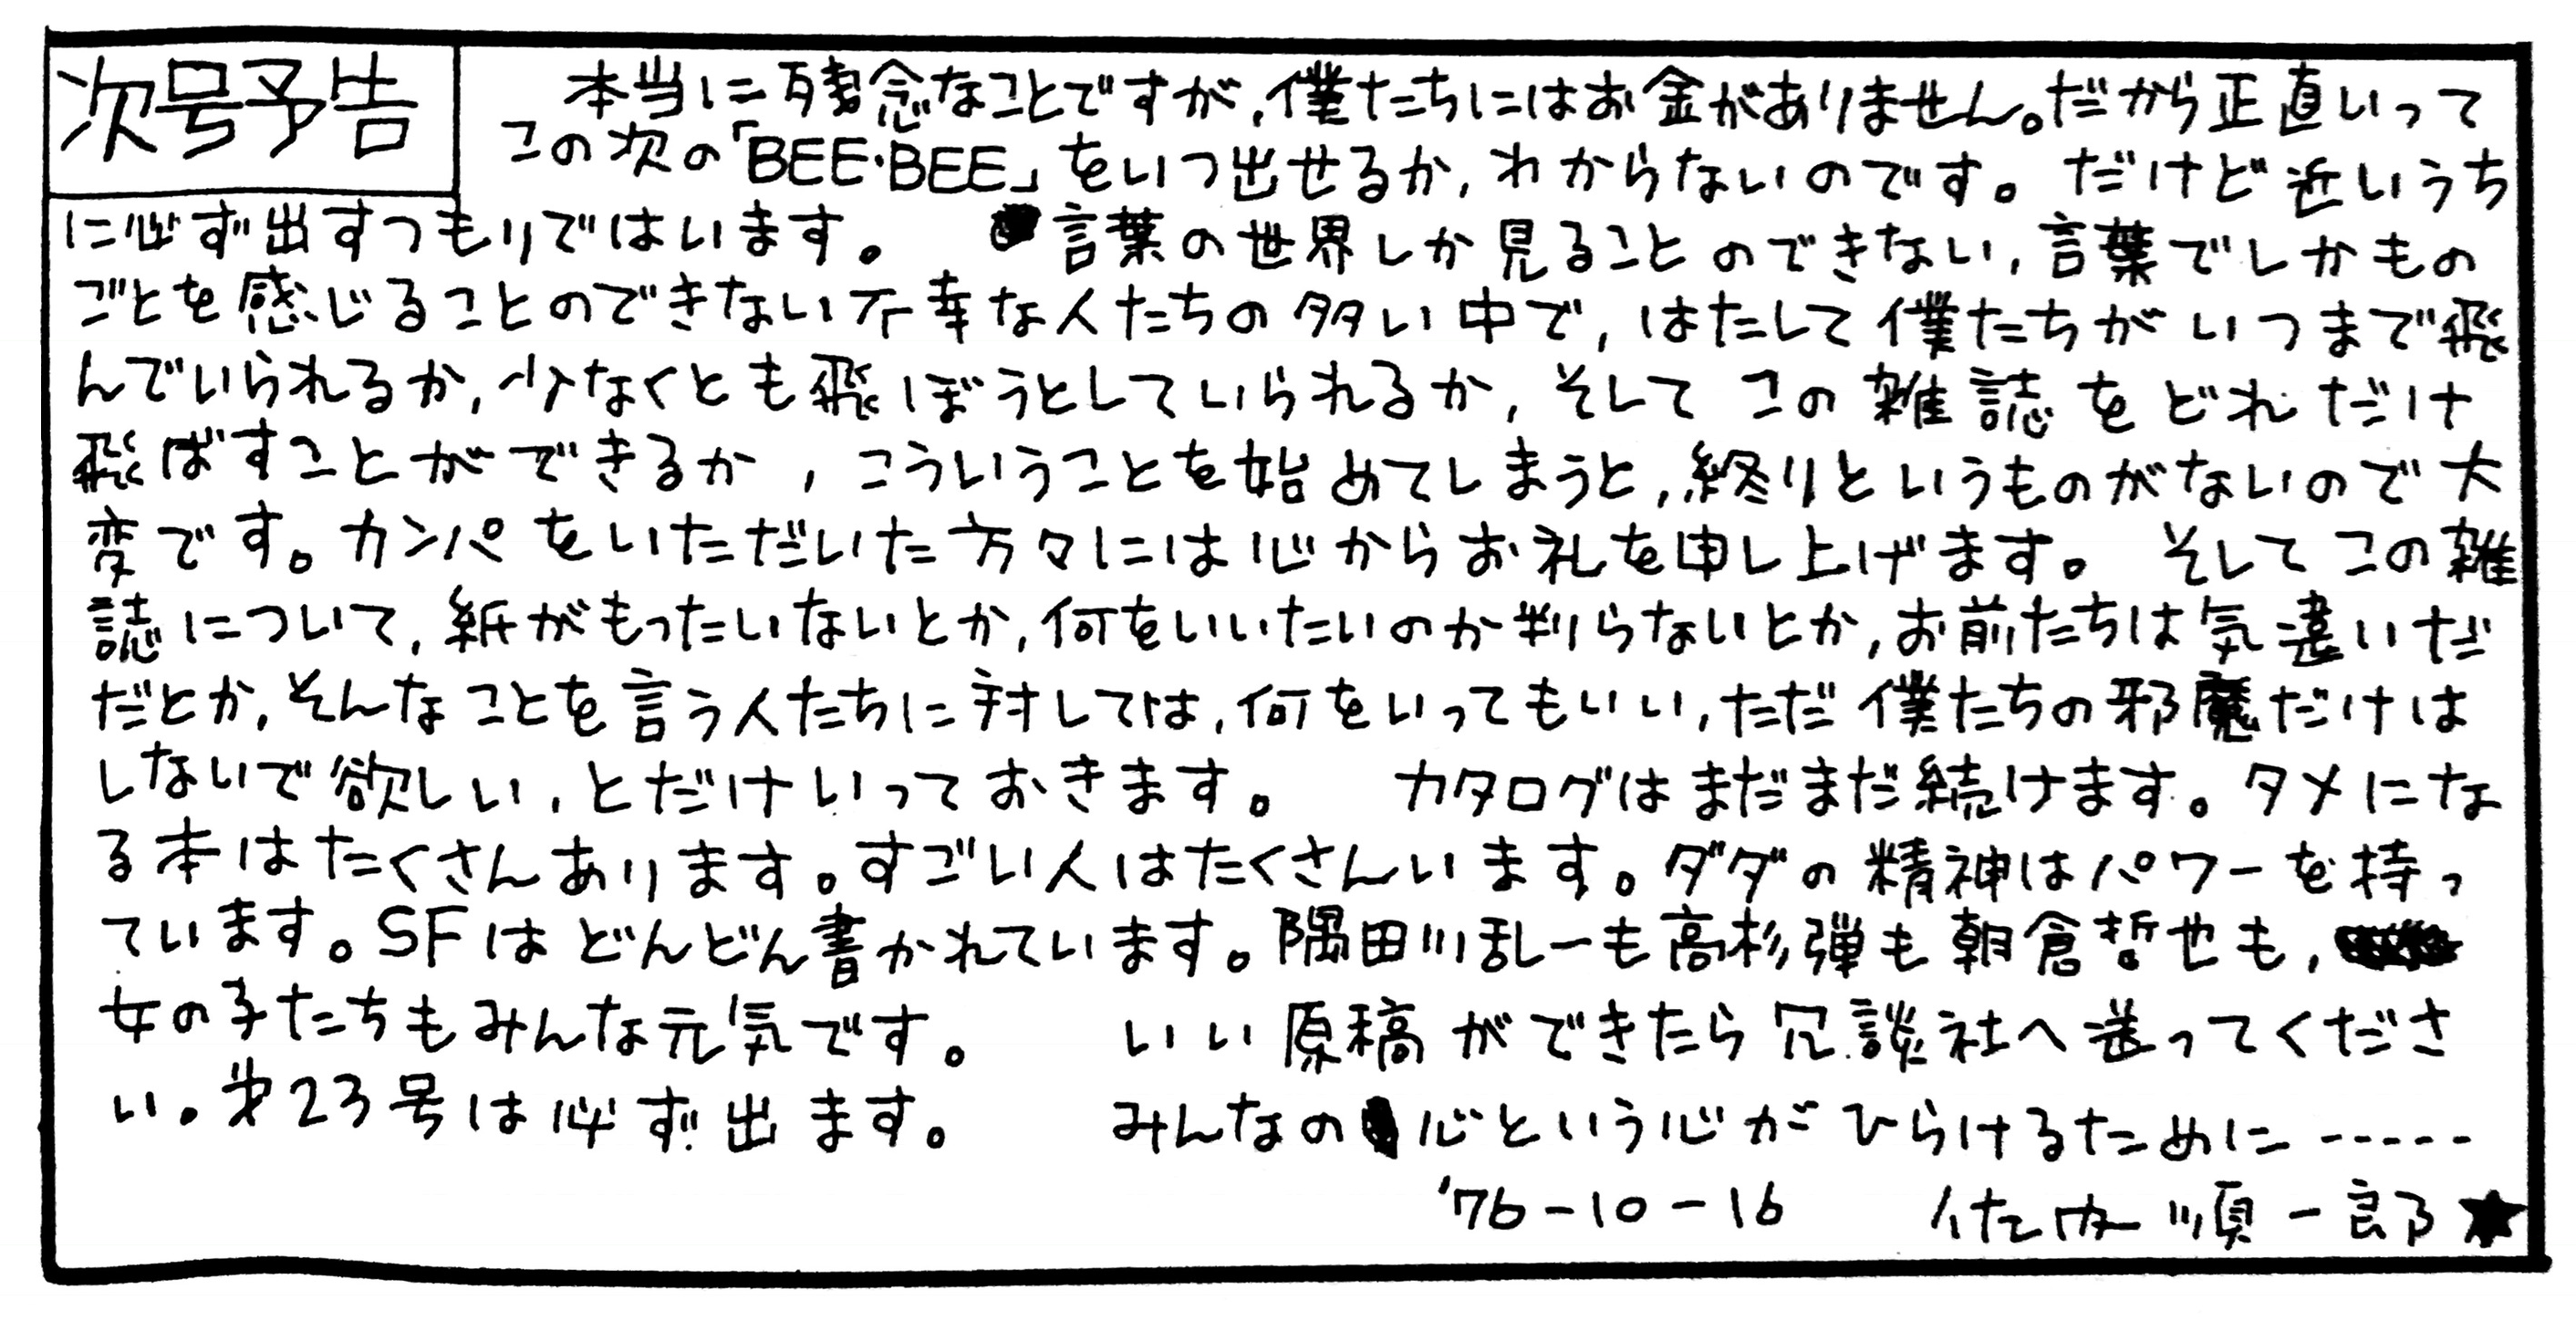 次号予告
本当に残念なことですが,僕たちにはお金がありません。だから正直いって
この次の「BEE・BEE」をいつ出せるか,わからないのです。だけど近いうち
に必ず出すつもりではいます。 言葉の世界しか見ることのできない,言葉でしかもの
ごとを感じることのできない不幸な人たちの多い中で,はたして僕たちがいつまで飛
んでいられるか,少なくとも飛ぼうとしていられるか,そしてこの雑誌をどれだけ
飛ばすことができるか,こういうことを始めてしまうと,終りというものがないので大
変です。カンパをいただいた方々には心からお礼を申し上げます。 そしてこの雑
誌について,紙がもったいないとか,何をいいたいのか判らないとか,お前たちは気違いだ
だとか,そんなことを言う人たちに対しては,何をいってもいい,ただ僕たちの邪魔だけは
しないで欲しい,とだけいっておきます。 カタログはまだまだ続けます。タメにな
る本はたくさんあります。すごい人はたくさんいます。ダダの精神はパワーを持っ
ています。SFはどんどん書かれています。隅田川乱一も高杉弾も朝倉哲也も,
女の子たちもみんな元気です。 いい原稿ができたら冗談社へ送ってくださ
い。第23号は必ず出ます。 みんなの心という心がひらけるために-----
'76-10-16 佐内順一郎★